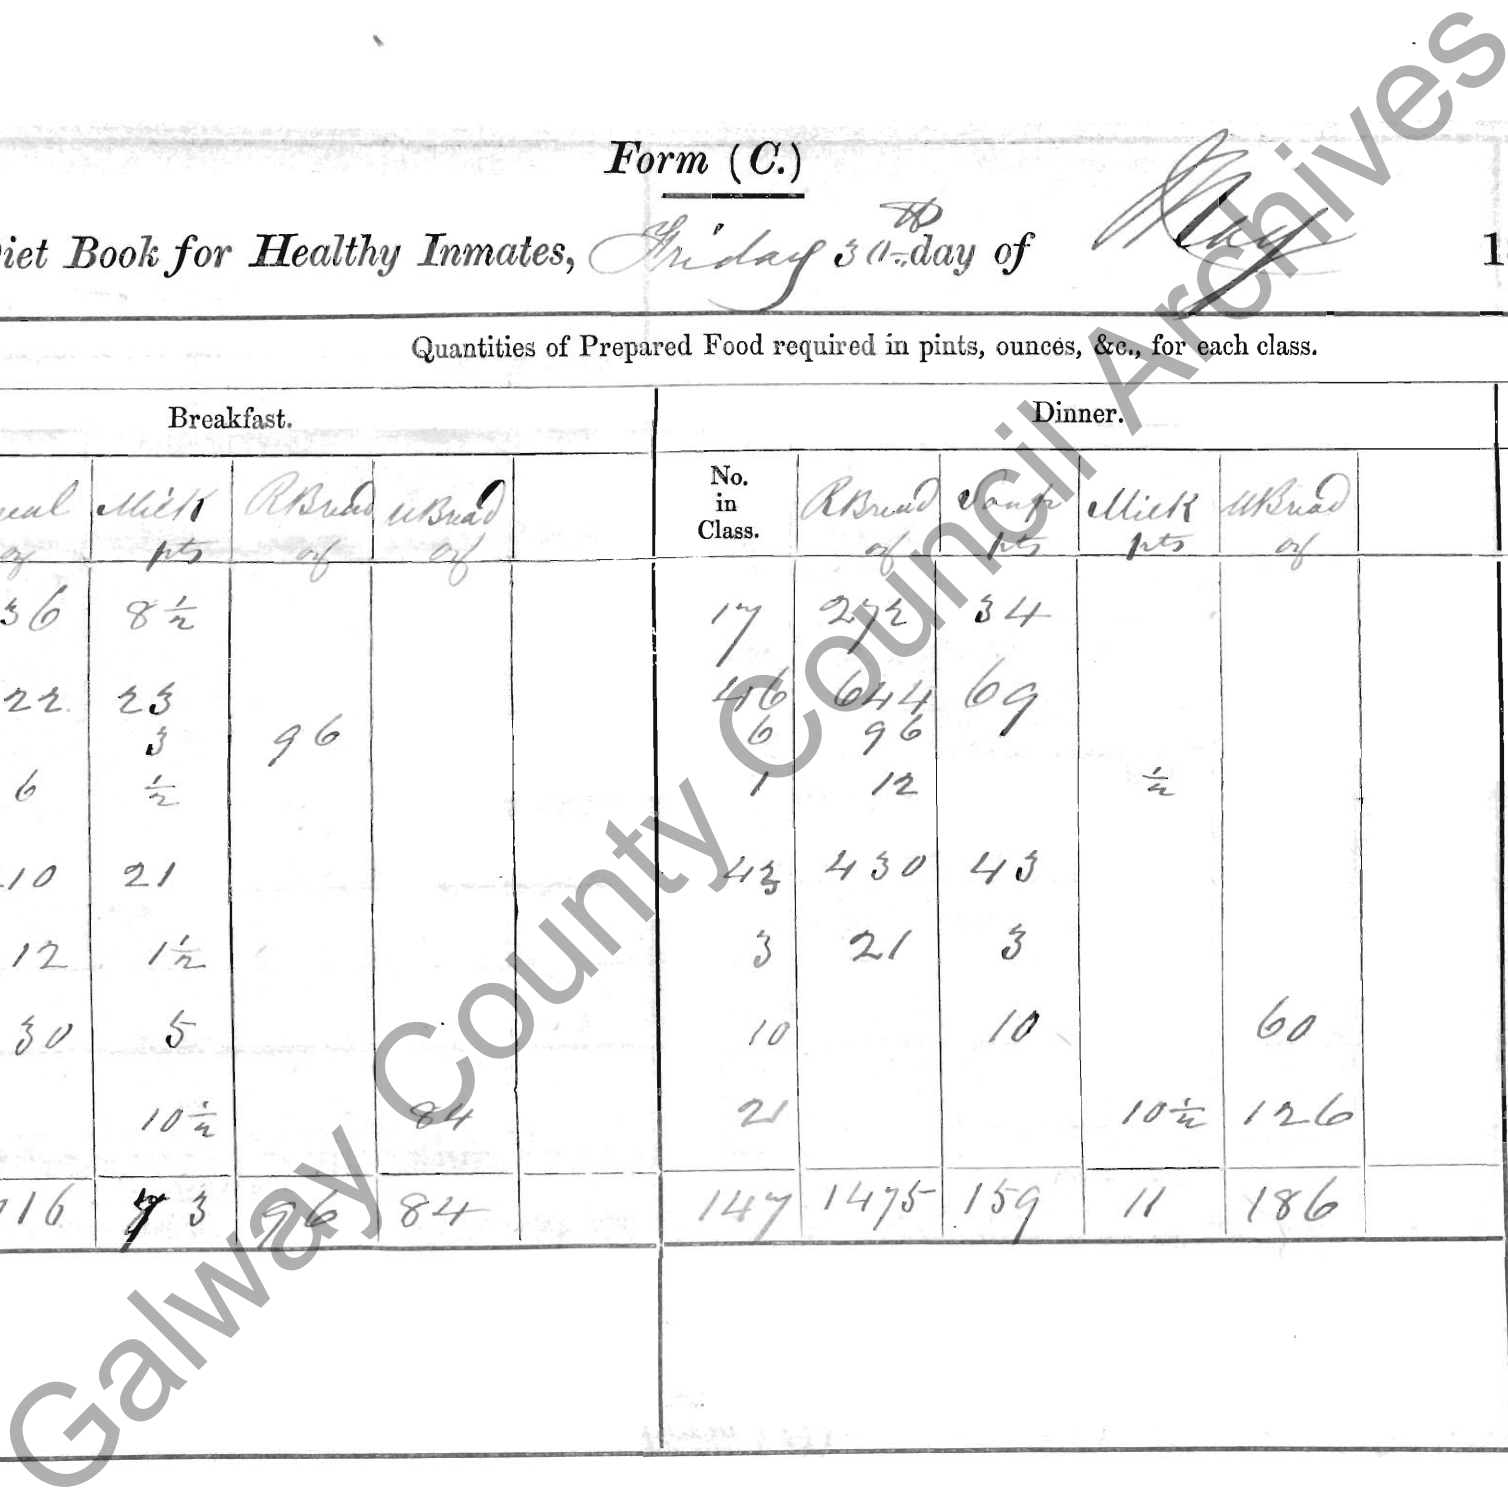 Form (C.)
Diet Book for Healthy Inmates, Friday 30th day of May 1
Quantities of Prepared Food required in pints, ounces, &c., for each class.
Breakfast. Dinner.
Milk RBread WBread No. in Class. RBread Soup Milk WBread
oz pts oz oz oz pts pts oz
36 8½ 17 272 34
22 23 46 644 69
3 96 6 96
6 ½ 1 12 ½
10 21 43 430 43
12 1½ 3 21 3
30 5 10 10 60
10½ 84 21 10½ 126
16 73 96 84 147 1475 159 11 186
Galway County Council Archives